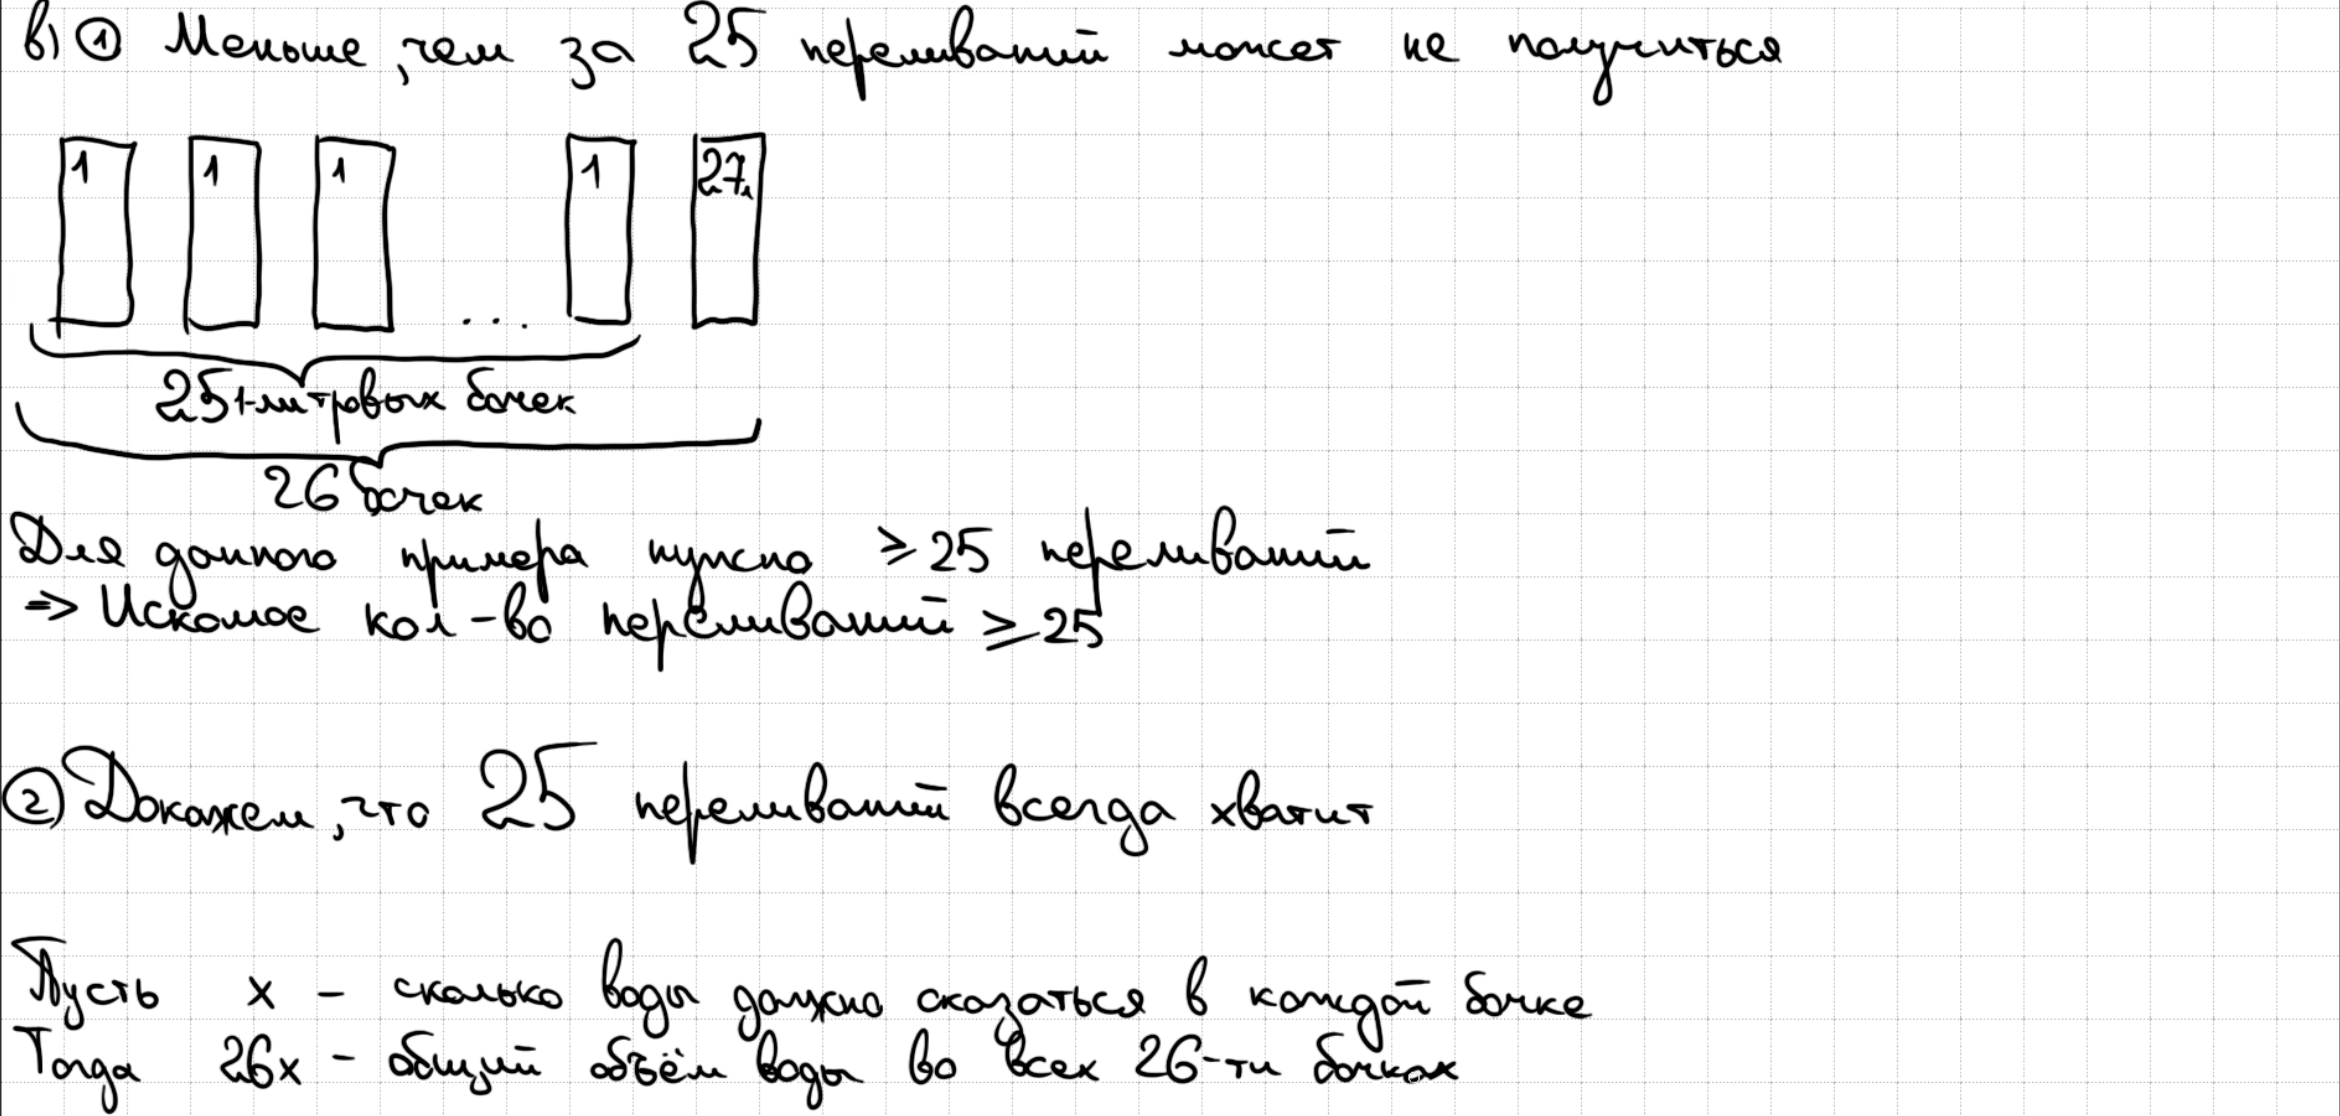 в) ① Меньше, чем за 25 переливаний может не получиться
1 1 1 ... 1 27л
25 1-литровых бочек
26 бочек
Для данного примера нужно ≥ 25 переливаний
=> Искомое кол-во переливаний ≥ 25
② Докажем, что 25 переливаний всегда хватит
Пусть x - сколько воды должно оказаться в каждой бочке
Тогда 26x - общий объём воды во всех 26-ти бочках